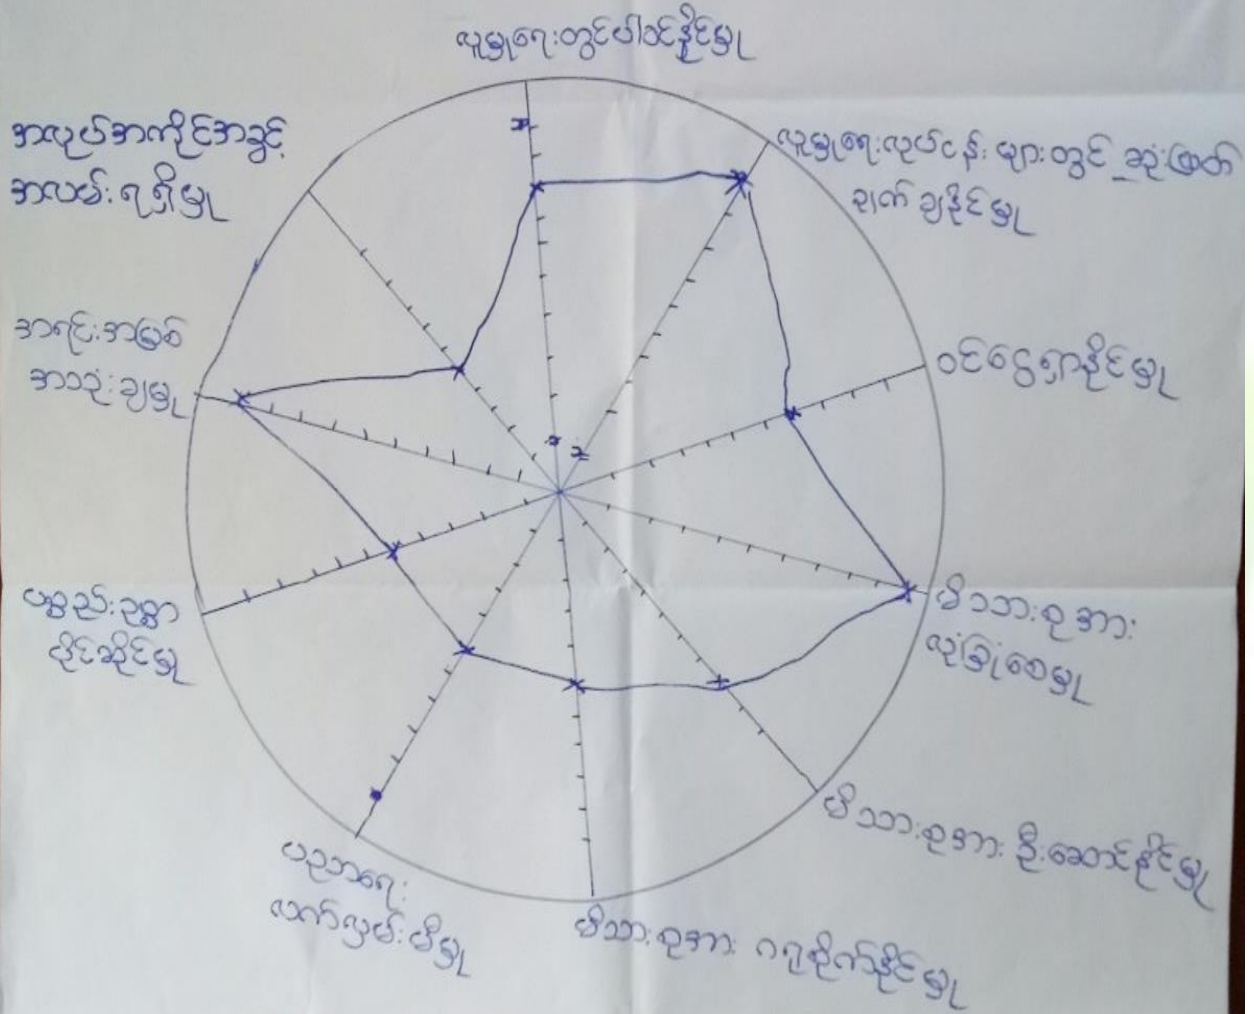 လူမှုရေးတွင်ပါဝင်နိုင်မှု
လူမှုရေးလုပ်ငန်းများတွင် ဆုံးဖြတ်
ချက်ချနိုင်မှု
ဝင်ငွေရှာနိုင်မှု
မိသားစုအား
လုံခြုံစေမှု
မိသားစုအား ဦးဆောင်နိုင်မှု
မိသားစုအား ဂရုစိုက်နိုင်မှု
ပညာရေး
လက်လှမ်းမီမှု
ပစ္စည်းဥစ္စာ
ပိုင်ဆိုင်မှု
အရင်းအမြစ်
အသုံးချမှု
အလုပ်အကိုင်အခွင့်
အလမ်းရရှိမှု